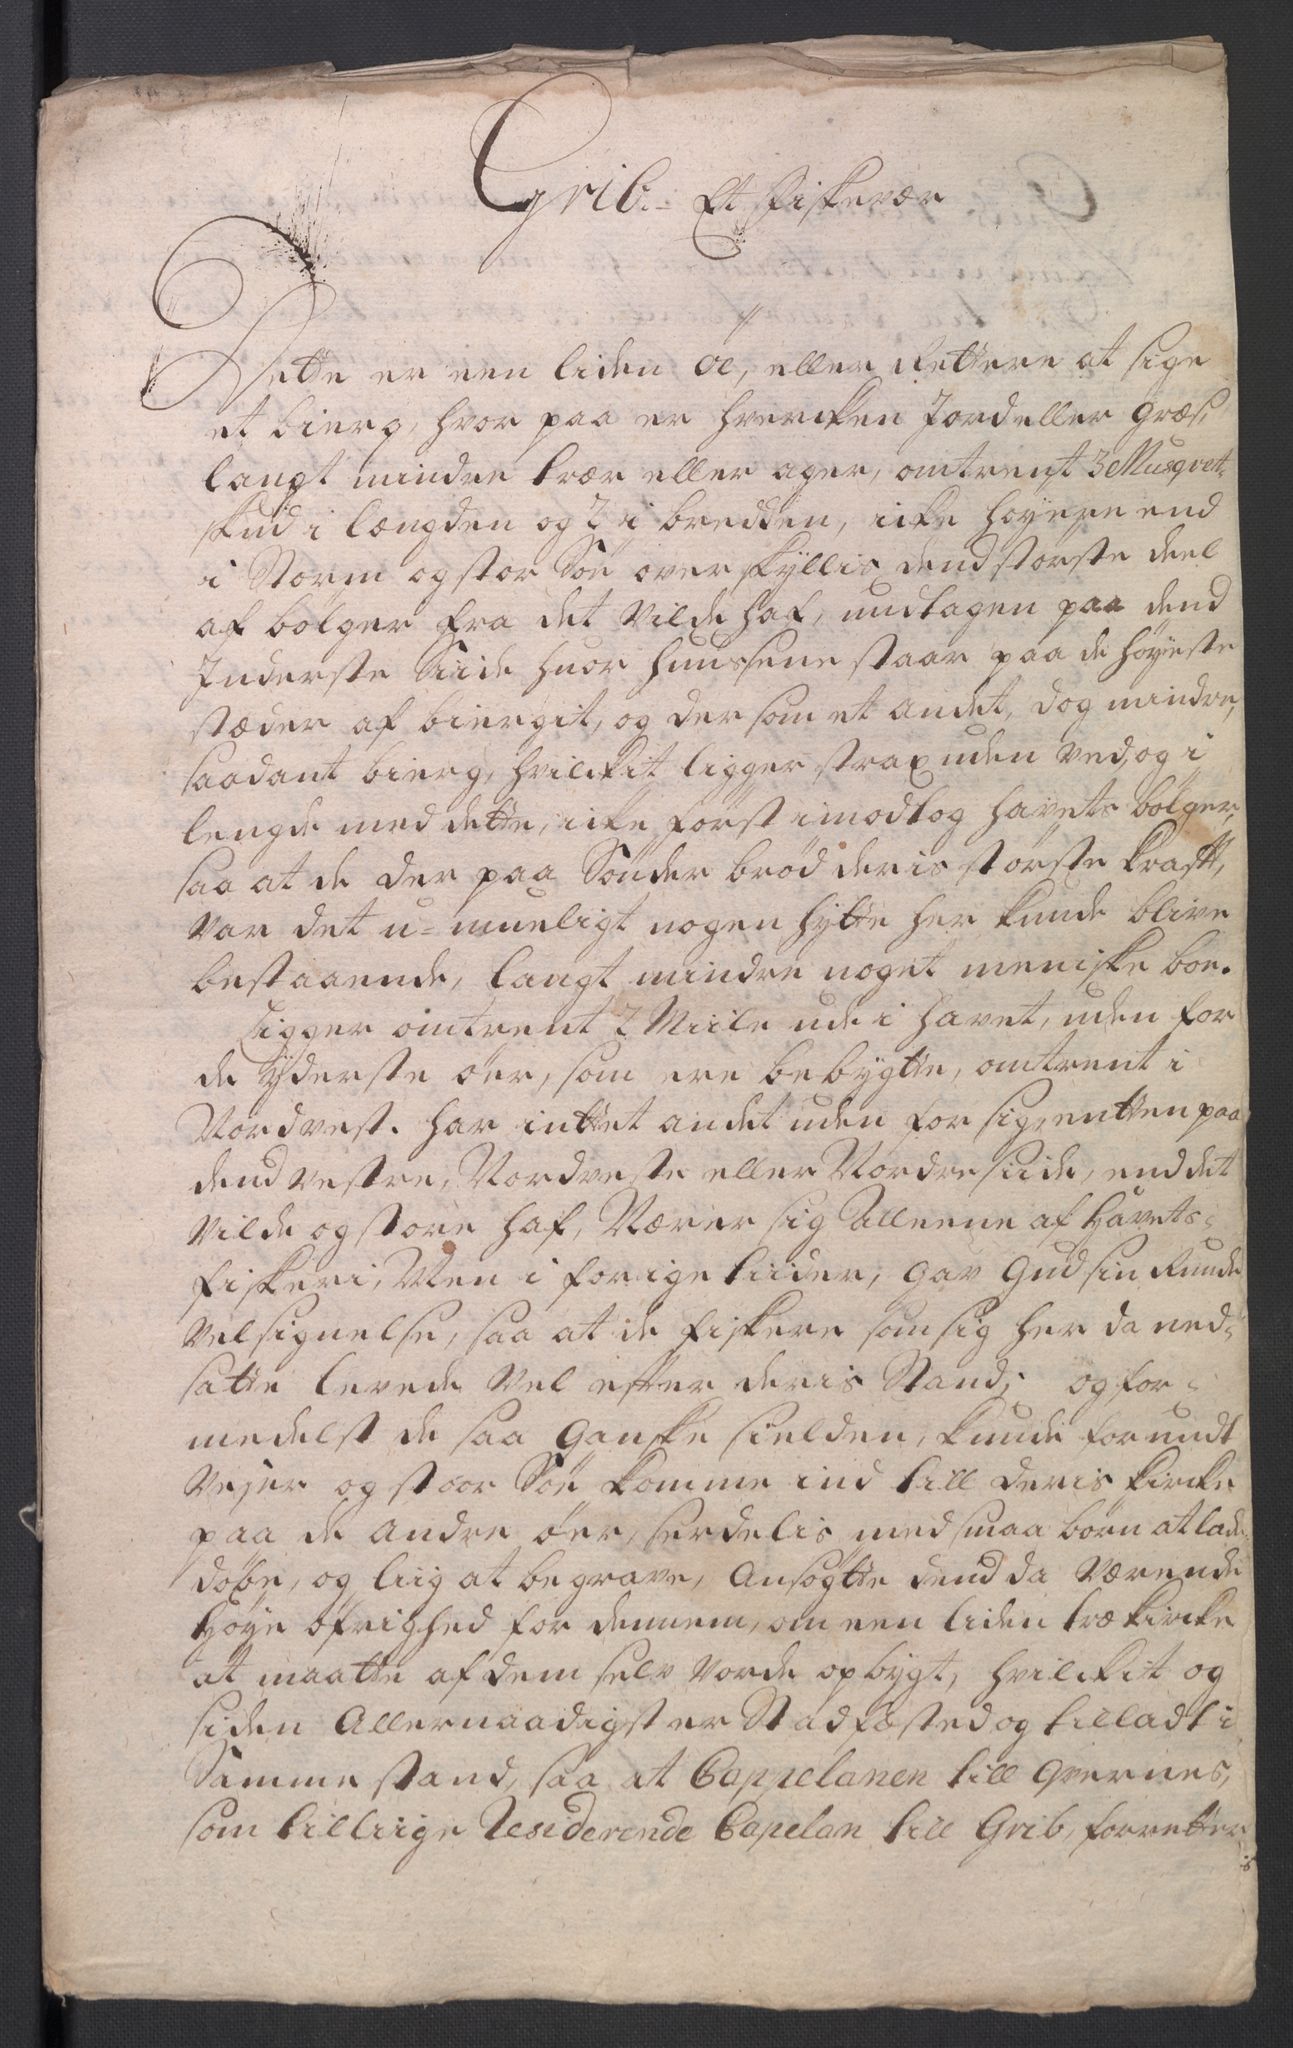 Grib. Et Fiskevær
Dette er een liden Øe, eller Rettere at sige
et bierg, hvor paa er hvercken Jord eller græs,
langt mindre trær eller ager, omtrent 3 Musqvet-
skud i længden og 2 i bredden, icke høyere end
i Storm og stor Søe over skyllis dend største deel
af bølger fra det vilde haf, undtagen paa dend
Inderste Siide huor huussene staar paa de høyeste
stæder af biergit, og der som et andet, dog mindre,
saadant bierg, hvilckit ligger strax uden ved, og i
lengde med dette, icke først imodtog havets bølger,
saa at de der paa Sønder brød deris største krafft,
var det u-mueligt nogen hytte her kunde blive
bestaaende, langt mindre noget meniske boe.
Ligger omtrent 2 Miile ude i havet, uden for
de yderste øer, som ere bebygte, omtrent i
Nordvest. har intet andet uden for sig, entten paa
dend vestre, Nordveste eller Nordre siide, end det
vilde og store haf, Nærer sig alleene af Havets
fiskeri, Men i forige tiider, gav Gud sin Runde
velsignelse, saa at de fiskere som sig her da ned-
satte levede vel effter deris Stand; og for-
medelst de saa Ganske sielden, kunde for undt
Vejer og stoor Søe komme ind till deris kircke
paa de andre øer, serdelis med smaa børn at lade
døbe, og liig at begrave, Ansøgte dend da værende
høye øfrighed for dennem, om een liden træ kircke
at maatte af dem selv vorde opbygt, hvilckit og
siden Allernaadigst er Stadfæsted og tilladt i
Samme stand, saa at Cappelanen till Qvernes,
som tilliige Residerende Capelan till Grib, forretter